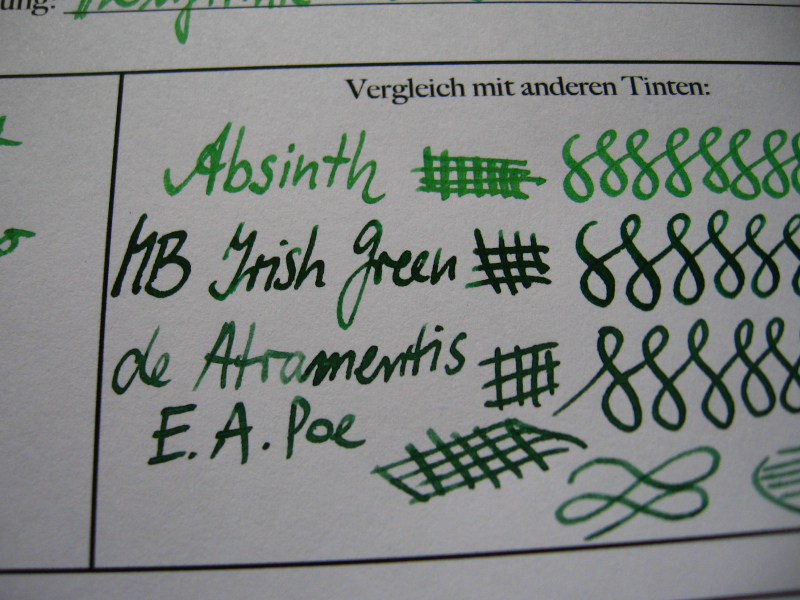 Vergleich mit anderen Tinten:
Absinth
MB Irish Green
de Atramentis
E.A. Poe